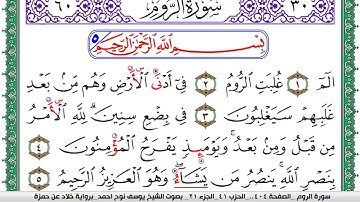 ٦٠ سُورَةُ الرُّومِ ٣٠
بِسْمِ اللَّهِ الرَّحْمَٰنِ الرَّحِيمِ
الٓمٓ ١ غُلِبَتِ الرُّومُ ٢ فِىٓ أَدْنَى الْأَرْضِ وَهُم مِّنۢ بَعْدِ
غَلَبِهِمْ سَيَغْلِبُونَ ٣ فِى بِضْعِ سِنِينَ ۗ لِلَّهِ الْأَمْرُ
مِن قَبْلُ وَمِنۢ بَعْدُ ۚ وَيَوْمَئِذٍ يَفْرَحُ الْمُؤْمِنُونَ ٤
بِنَصْرِ اللَّهِ ۚ يَنصُرُ مَن يَشَآءُ ۖ وَهُوَ الْعَزِيزُ الرَّحِيمُ ٥
سورة الروم الصفحة ٤٠٤. الحزب ٤١ الجزء ٢١ بصوت الشيخ يوسف نوح احمد برواية خلاد عن حمزة